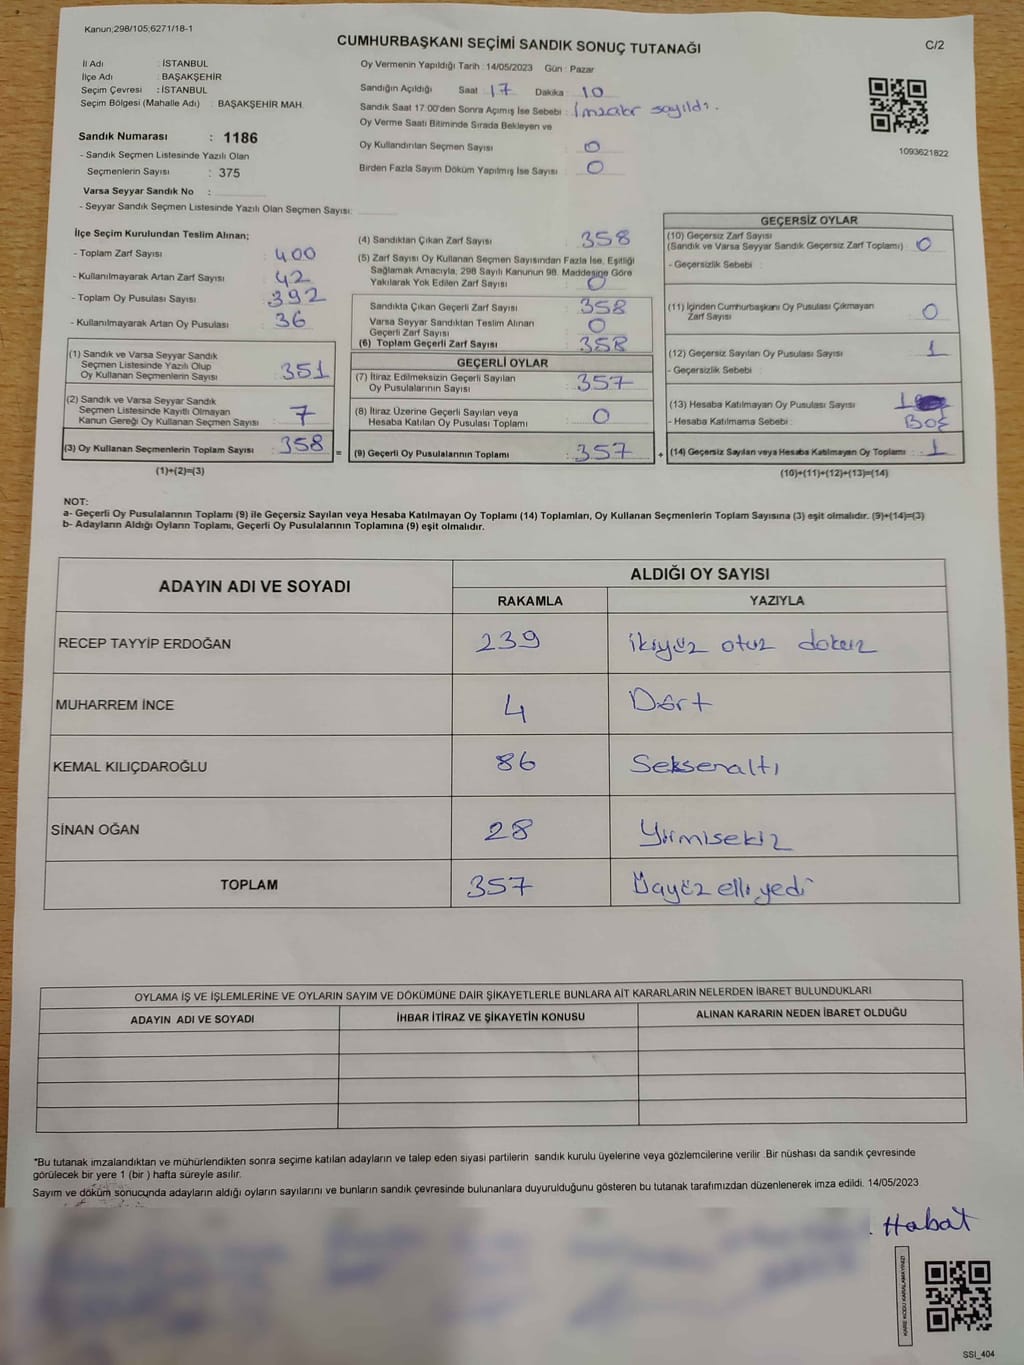 Kanun;298/105;6271/18-1
CUMHURBAŞKANI SEÇİMİ SANDIK SONUÇ TUTANAĞI
C/2
İl Adı : İSTANBUL
İlçe Adı : BAŞAKŞEHİR
Seçim Çevresi : İSTANBUL
Seçim Bölgesi (Mahalle Adı) : BAŞAKŞEHİR MAH.
Oy Vermenin Yapıldığı Tarih : 14/05/2023 Gün : Pazar
Sandığın Açıldığı Saat : 17 Dakika : 10
Sandık Saat 17:00'den Sonra Açımış İse Sebebi : İmzalar sayıldı.
Oy Verme Saati Bitiminde Sırada Bekleyen ve
Oy Kullandırılan Seçmen Sayısı : 0
Birden Fazla Sayım Döküm Yapılmış İse Sayısı : 0
1093621822
Sandık Numarası : 1186
- Sandık Seçmen Listesinde Yazılı Olan
Seçmenlerin Sayısı : 375
Varsa Seyyar Sandık No :
- Seyyar Sandık Seçmen Listesinde Yazılı Olan Seçmen Sayısı:
İlçe Seçim Kurulundan Teslim Alınan;
- Toplam Zarf Sayısı : 400
- Kullanılmayarak Artan Zarf Sayısı : 42
- Toplam Oy Pusulası Sayısı : 392
- Kullanılmayarak Artan Oy Pusulası : 36
(1) Sandık ve Varsa Seyyar Sandık
Seçmen Listesinde Yazılı Olup
Oy Kullanan Seçmenlerin Sayısı : 351
(2) Sandık ve Varsa Seyyar Sandık
Seçmen Listesinde Kayıtlı Olmayan
Kanun Gereği Oy Kullanan Seçmen Sayısı : 7
(3) Oy Kullanan Seçmenlerin Toplam Sayısı : 358
(1)+(2)=(3)
(4) Sandıktan Çıkan Zarf Sayısı : 358
(5) Zarf Sayısı Oy Kullanan Seçmen Sayısından Fazla İse, Eşitliği
Sağlamak Amacıyla, 298 Sayılı Kanunun 98. Maddesine Göre
Yakılarak Yok Edilen Zarf Sayısı : 0
Sandıkta Çıkan Geçerli Zarf Sayısı : 358
Varsa Seyyar Sandıktan Teslim Alınan
Geçerli Zarf Sayısı : 0
(6) Toplam Geçerli Zarf Sayısı : 358
GEÇERLİ OYLAR
(7) İtiraz Edilmeksizin Geçerli Sayılan
Oy Pusulalarının Sayısı : 357
(8) İtiraz Üzerine Geçerli Sayılan veya
Hesaba Katılan Oy Pusulası Toplamı : 0
= (9) Geçerli Oy Pusulalarının Toplamı : 357
GEÇERSİZ OYLAR
(10) Geçersiz Zarf Sayısı
(Sandık ve Varsa Seyyar Sandık Geçersiz Zarf Toplamı) : 0
- Geçersizlik Sebebi :
(11) İçinden Cumhurbaşkanı Oy Pusulası Çıkmayan
Zarf Sayısı : 0
(12) Geçersiz Sayılan Oy Pusulası Sayısı : 1
- Geçersizlik Sebebi :
(13) Hesaba Katılmayan Oy Pusulası Sayısı
- Hesaba Katılmama Sebebi : Boş
+ (14) Geçersiz Sayılan veya Hesaba Katılmayan Oy Toplamı : 1
(10)+(11)+(12)+(13)=(14)
NOT:
a- Geçerli Oy Pusulalarının Toplamı (9) ile Geçersiz Sayılan veya Hesaba Katılmayan Oy Toplamı (14) Toplamları, Oy Kullanan Seçmenlerin Toplam Sayısına (3) eşit olmalıdır. (9)+(14)=(3)
b- Adayların Aldığı Oyların Toplamı, Geçerli Oy Pusulalarının Toplamına (9) eşit olmalıdır.
ADAYIN ADI VE SOYADI
ALDIĞI OY SAYISI
RAKAMLA YAZIYLA
RECEP TAYYİP ERDOĞAN 239 ikiyüz otuz dokuz
MUHARREM İNCE 4 Dört
KEMAL KILIÇDAROĞLU 86 Seksenaltı
SİNAN OĞAN 28 Yirmisekiz
TOPLAM 357 Üçyüz elli yedi
OYLAMA İŞ VE İŞLEMLERİNE VE OYLARIN SAYIM VE DÖKÜMÜNE DAİR ŞİKAYETLERLE BUNLARA AİT KARARLARIN NELERDEN İBARET BULUNDUKLARI
ADAYIN ADI VE SOYADI İHBAR İTİRAZ VE ŞİKAYETİN KONUSU ALINAN KARARIN NEDEN İBARET OLDUĞU
*Bu tutanak imzalandıktan ve mühürlendikten sonra seçime katılan adayların ve talep eden siyasi partilerin sandık kurulu üyelerine veya gözlemcilerine verilir .Bir nüshası da sandık çevresinde
görülecek bir yere 1 (bir ) hafta süreyle asılır.
Sayım ve döküm sonucunda adayların aldığı oyların sayılarını ve bunların sandık çevresinde bulunanlara duyurulduğunu gösteren bu tutanak tarafımızdan düzenlenerek imza edildi. 14/05/2023
Habat
KARE KODU KARALAMAYINIZ!
SSI_404